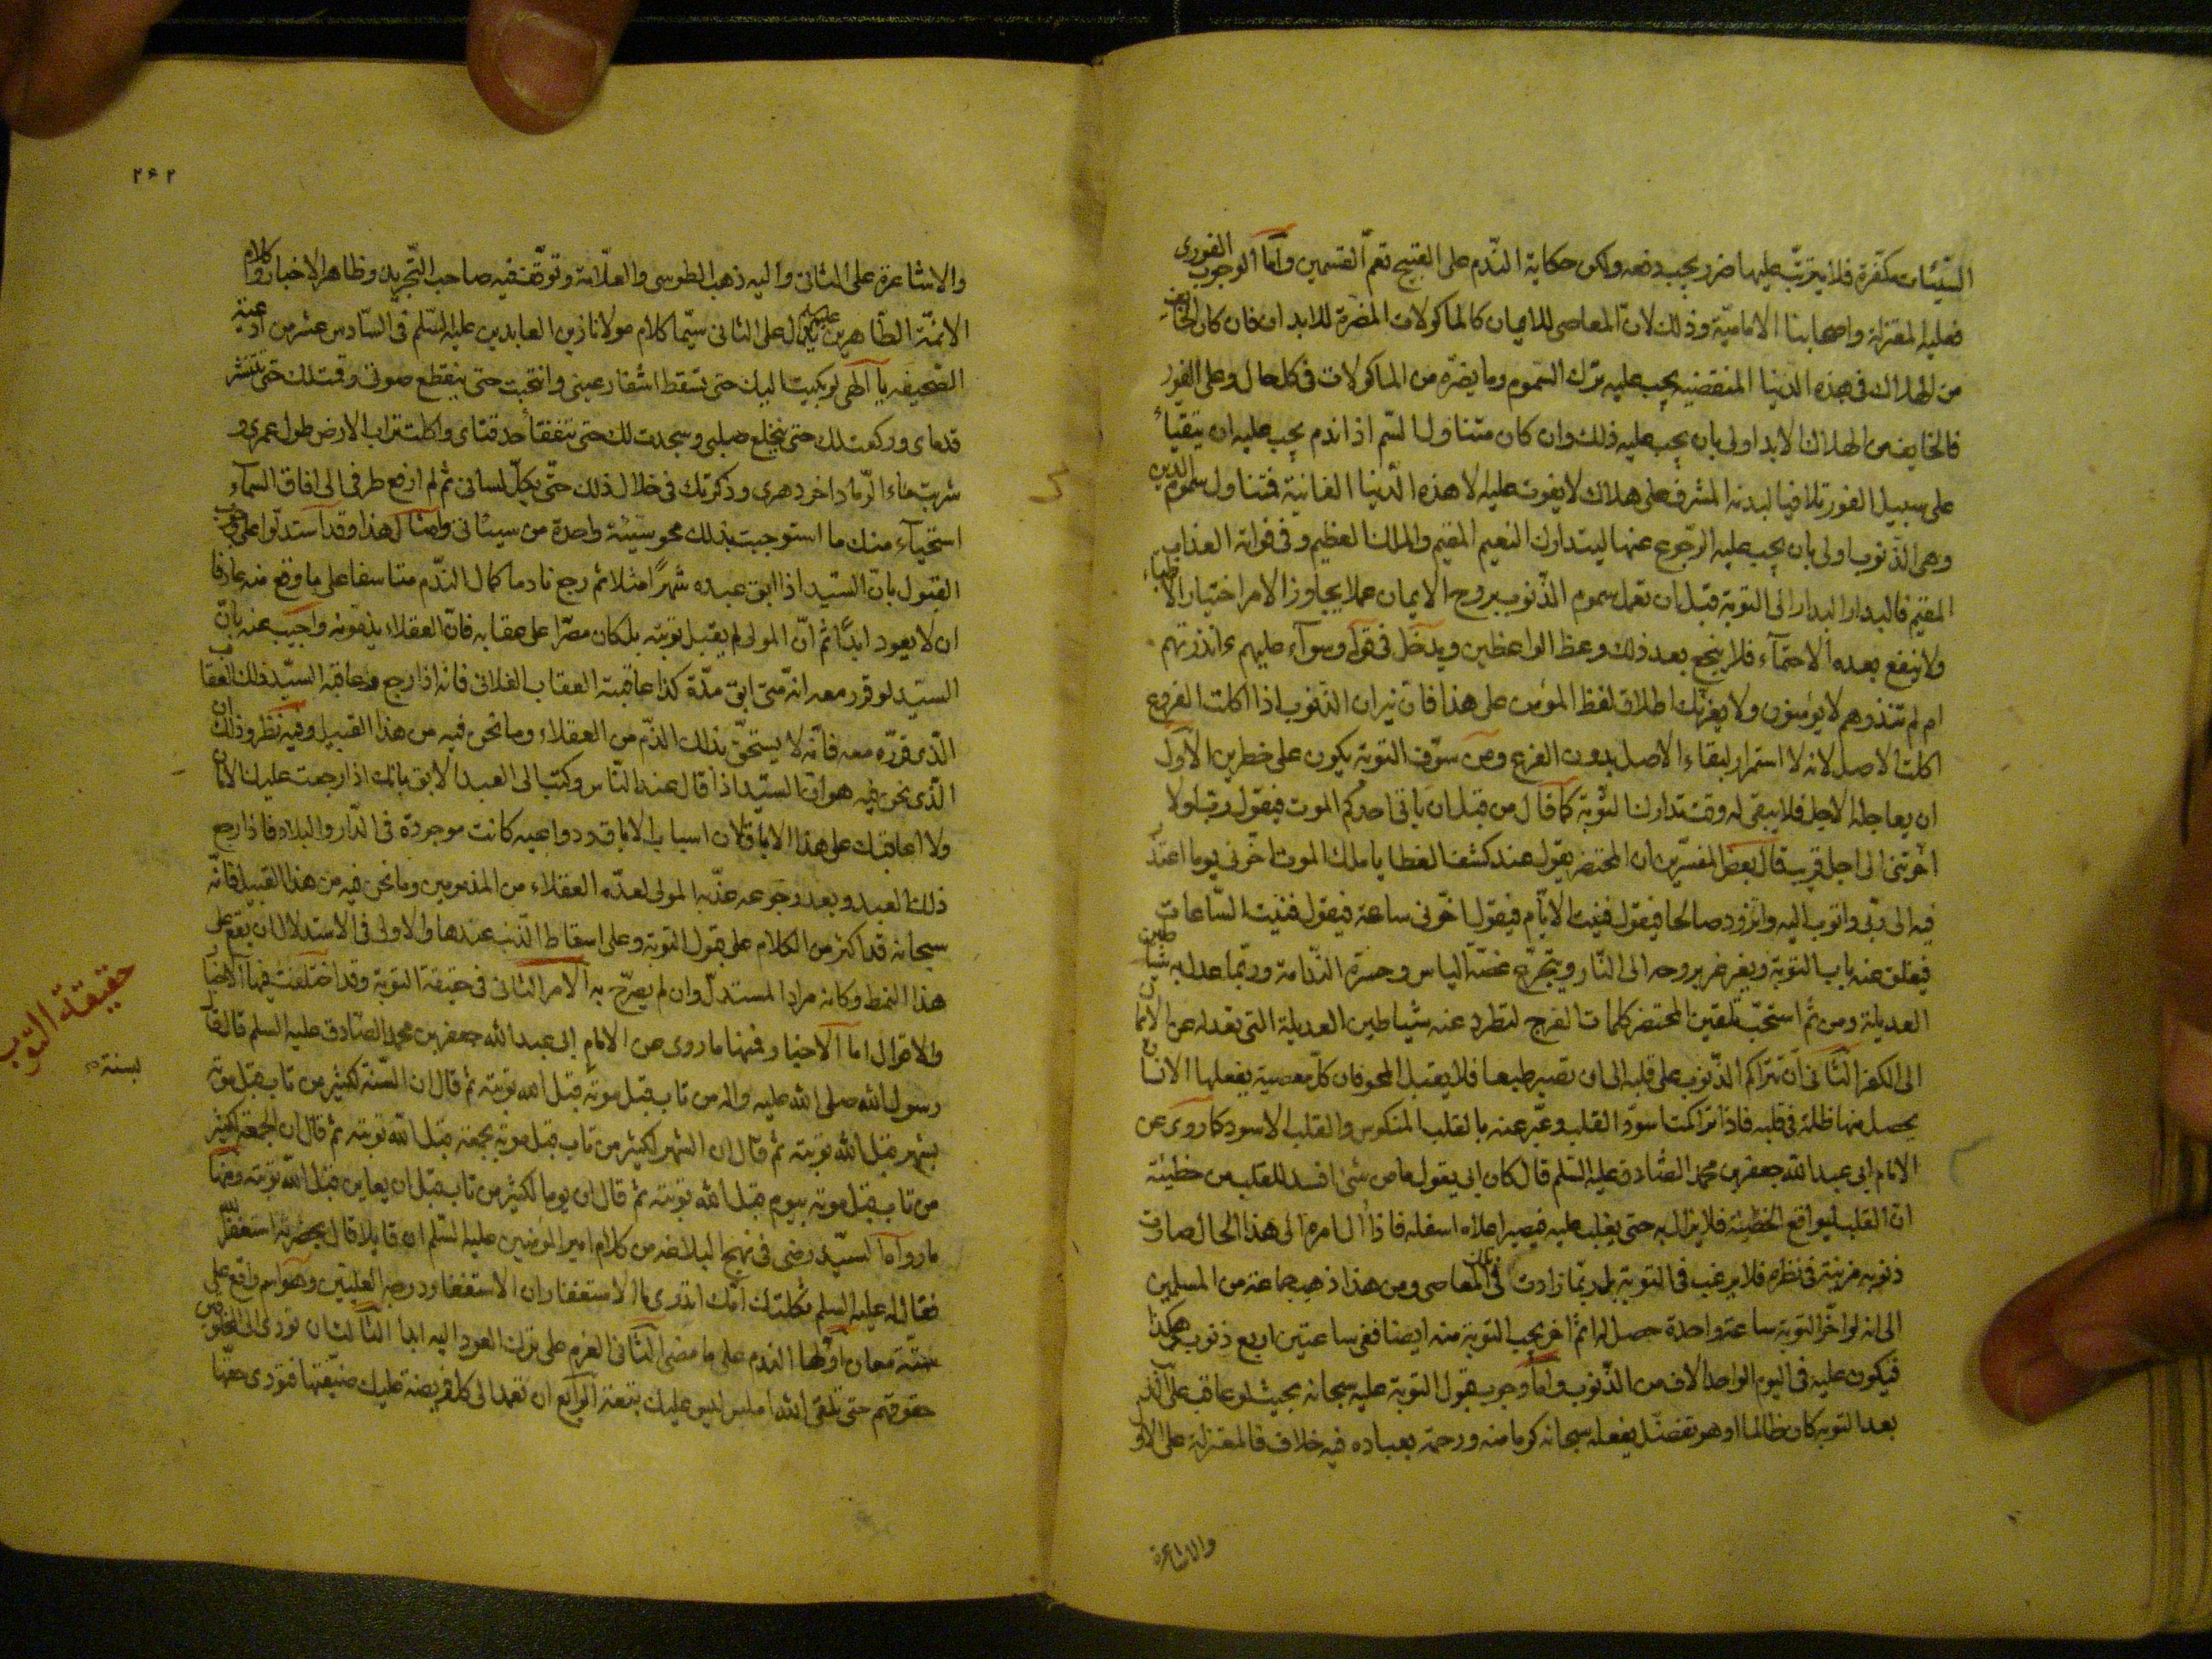 السّيّئات مكفّرة فلا يترتّب عليها ضرر يجب دفعه ولكن حكاية النّدم على القبيح تعمّ القسمين وامّا الوجوب الفورى
فعليه المعتزلة واصحابنا الاماميّة وذلك لانّ المعاصى للايمان كالماكولات المضرّة للابدان فان كان الخائف
من الهلاك فى هذه الدنيا المنقضية يجب عليه ترك السّموم وما يضرّه من الماكولات فى كل حال وعلى الفور
فالخايف من الهلاك الابد اولى بان يجب عليه ذلك وان كان متناول السّم اذا ندم يجب عليه ان يتقيّأ
على سبيل الفور تلافيا لبدنه المشرف على هلاك لا يفوت عليه الا هذه الدّنيا الفانية فمتناول سموم الدين
وهى الذّنوب اولى بان يجب عليه الرّجوع عنها ليتدارك النعيم المقيم والملك العظيم وفى فواته العذاب
المقيم فالبدار البدار الى التوبة قبل ان تعمل سموم الذّنوب بروح الايمان عملا يجاوز الامر اختيار الاطباء
ولا ينفع بعده الاحتماء فلا ينجع بعد ذلك وعظ الواعظين ويدخل فى قوله وسواء عليهم ءانذرتهم
ام لم تنذرهم لا يؤمنون ولا يغرنّك اطلاق لفظ المؤمن على هذا فان نيران الذّنوب اذا اكلت الفروع
اكلت الاصل لانه لا استمرار لبقاء الاصل بدون الفرع ومن سوّف التوبة يكون على خطرين الاول
ان يعاجله الاجل فلا يبقى له وقت تدارك التّوبة كما قال من قبل ان ياتى احدكم الموت فيقول ربّ لولا
اخّرتنى الى اجل قريب قال بعض المفسّرين ان المحتضر يقول عند كشف الغطا يا ملك الموت اخّرنى يوما اعتذر
فيه الى ربّى واتوب اليه واتزود صالحا فيقول فنيت الايّام فيقول اخّرنى ساعة فيقول فنيت السّاعات
فيغلق عنه باب التوبة ويغرغر بروحه الى النّار ويتجرّع غصّة الياس وحسرة النّدامة وربّما عدل به شياطين
العديلة ومن ثمّ استحبّ تلقين المحتضر كلمات الفرج لتطرد عنه شياطين العديلة التى تعدله عن الايمان
الى الكفر الثّانى ان تتراكم الذّنوب على قلبه الى ان تصير طبعا فلا يقبل المحو فان كلّ معصية يفعلها الانسان
يحصل منها ظلمة فى قلبه فاذا تراكمت اسودّ القلب وعبّر عنه بالقلب المنكوس والقلب الاسود كما روى عن
الامام ابى عبد الله جعفر بن محمد الصّادق عليه السّلم قال كان ابى يقول ما من شئ افسد للقلب من خطيئة
انّ القلب ليواقع الخطيئة فلا يزال به حتى يغلب عليه فيصير اعلاه اسفله فاذا ال امره الى هذا الحال صارت
ذنوبه مزينة فى نظره فلا يرغب فى التوبة بل ربّما زادت فى المعاصى ومن هذا ذهب جماعة من المسلمين
الى انه لو اخّر التوبة ساعة واحدة حصل له اثم اخر يجب التوبة منه ايضا ففى ساعتين اربع ذنوب وهكذا
فيكون عليه فى اليوم الواحد الاف من الذّنوب وامّا وجوب قبول التوبة عليه سبحانه بحيث لو عاقب على الذنب
بعد التوبه كان ظالما او هو تفضّل يفعله سبحانه كرما منه ورحمة بعباده فيه خلاف فالمعتزلة على الاول
والاشاعرة
٢٦٢
والاشاعرة على الثانى واليه ذهب الطوسى والعلّامة وتوقّف فيه صاحب التّجريد وظاهر الاخبار وكلام
الائمّة الطّاهرين يدل على الثانى سيّما كلام مولانا زين العابدين عليه السّلم فى السّادس عشر من ادعية
الصّحيفه يا الهى لو بكيت اليك حتى تسقط اشفار عينى وانتحبت حتى ينقطع صوتى وقمت لك حتى تتنشر
قدماى وركعت لك حتى ينخلع صلبى وسجدت لك حتى تتفقأ حدقتاى واكلت تراب الارض طول عمرى و
شربت ماء الرّماد اخر دهرى وذكرتك فى خلال ذلك حتّى يكلّ لسانى ثم لم ارفع طرفى الى افاق السّماء
استحياء منك ما استوجبت بذلك محو سيّئة واحدة من سيئاتى وامثال هذا وقد استدلّوا على وجوب
القبول بانّ السّيد اذا ابق عبده شهرًا مثلا ثم رجع نادما كمال النّدم متاسفا على ما وقع منه عازما
ان لا يعود ابدًا ثم انّ المولى لم يقبل توبته بل كان مصرّا على عقابه فانّ العقلاء يذمّونه واجيب عنه بانّ
السّيد لو قرر معه انه متى ابق مدّة كذا عاقبته العقاب الفلانى فانه اذا رجع وعاقبه السيّد ذلك العقاب
الّذى قرّره معه فانّه لا يستحقّ بذلك الذّم من العقلاء وما نحن فيه من هذا القبيل وفيه نظر وذلك ان
الّذى نحن فيه هو انّ السّيد اذا قال عند النّاس وكتب الى العبد الابق بانّك اذا رجعت عليك الامان
ولا اعاقبك على هذا الاباق لان اسباب الاباق ودواعيه كانت موجودة فى الدّار والبلاد فاذا رجع
ذلك العبد وبعد رجوعه عذّبه المولى لعدّه العقلاء من المذمومين وما نحن فيه من هذا القبيل فانّه
سبحانه قد اكثر من الكلام على قبول التوبة وعلى اسقاط الذّنب عندها والاولى فى الاستدلال ان يقع على
هذا النمط وكانه مراد المستدلّ وان لم يصرّح به الامر الثانى فى حقيقة التوبة وقد اختلفت فيها الاخبار
والاقوال اما الاخبار فمنها ما روى عن الامام ابى عبد الله جعفر بن محمد الصّادق عليه السلم قال قال
رسول الله صلى الله عليه واله من تاب قبل موته قبل الله توبته ثم قال ان السّنة لكثير من تاب قبل موته
بشهر قبل الله توبته ثم قال ان الشهر لكثير من تاب قبل موته بجمعة قبل الله توبته ثم قال ان الجمعة لكثير
من تاب قبل موته بيوم قبل الله توبته ثم قال ان يوما لكثير من تاب قبل ان يعاين قبل الله توبته ومنها
ما رواه السيّد رضى فى نهج البلاغه من كلام امير المؤمنين عليه السّلم ان قايلا قال بحضرته استغفر الله
فقال له عليه السلم ثكلتك امّك اتدرى ما الاستغفار ان الاستغفار درجة العليّين وهو اسم واقع على
ستّة معان اولها الندم على ما مضى الثّانى العزم على ترك العود اليه ابدا الثّالث ان تودى الى المخلوقين
حقوقهم حتى تلقى الله املس ليس عليك تبعة الرّابع ان تعمد الى كل فريضة عليك ضيّعتها فتودى حقّها
حقيقة التّوبة
بسنة